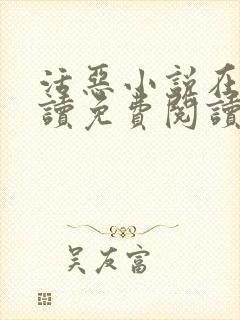 活惡小說在
讀免費閱讀
吴友富